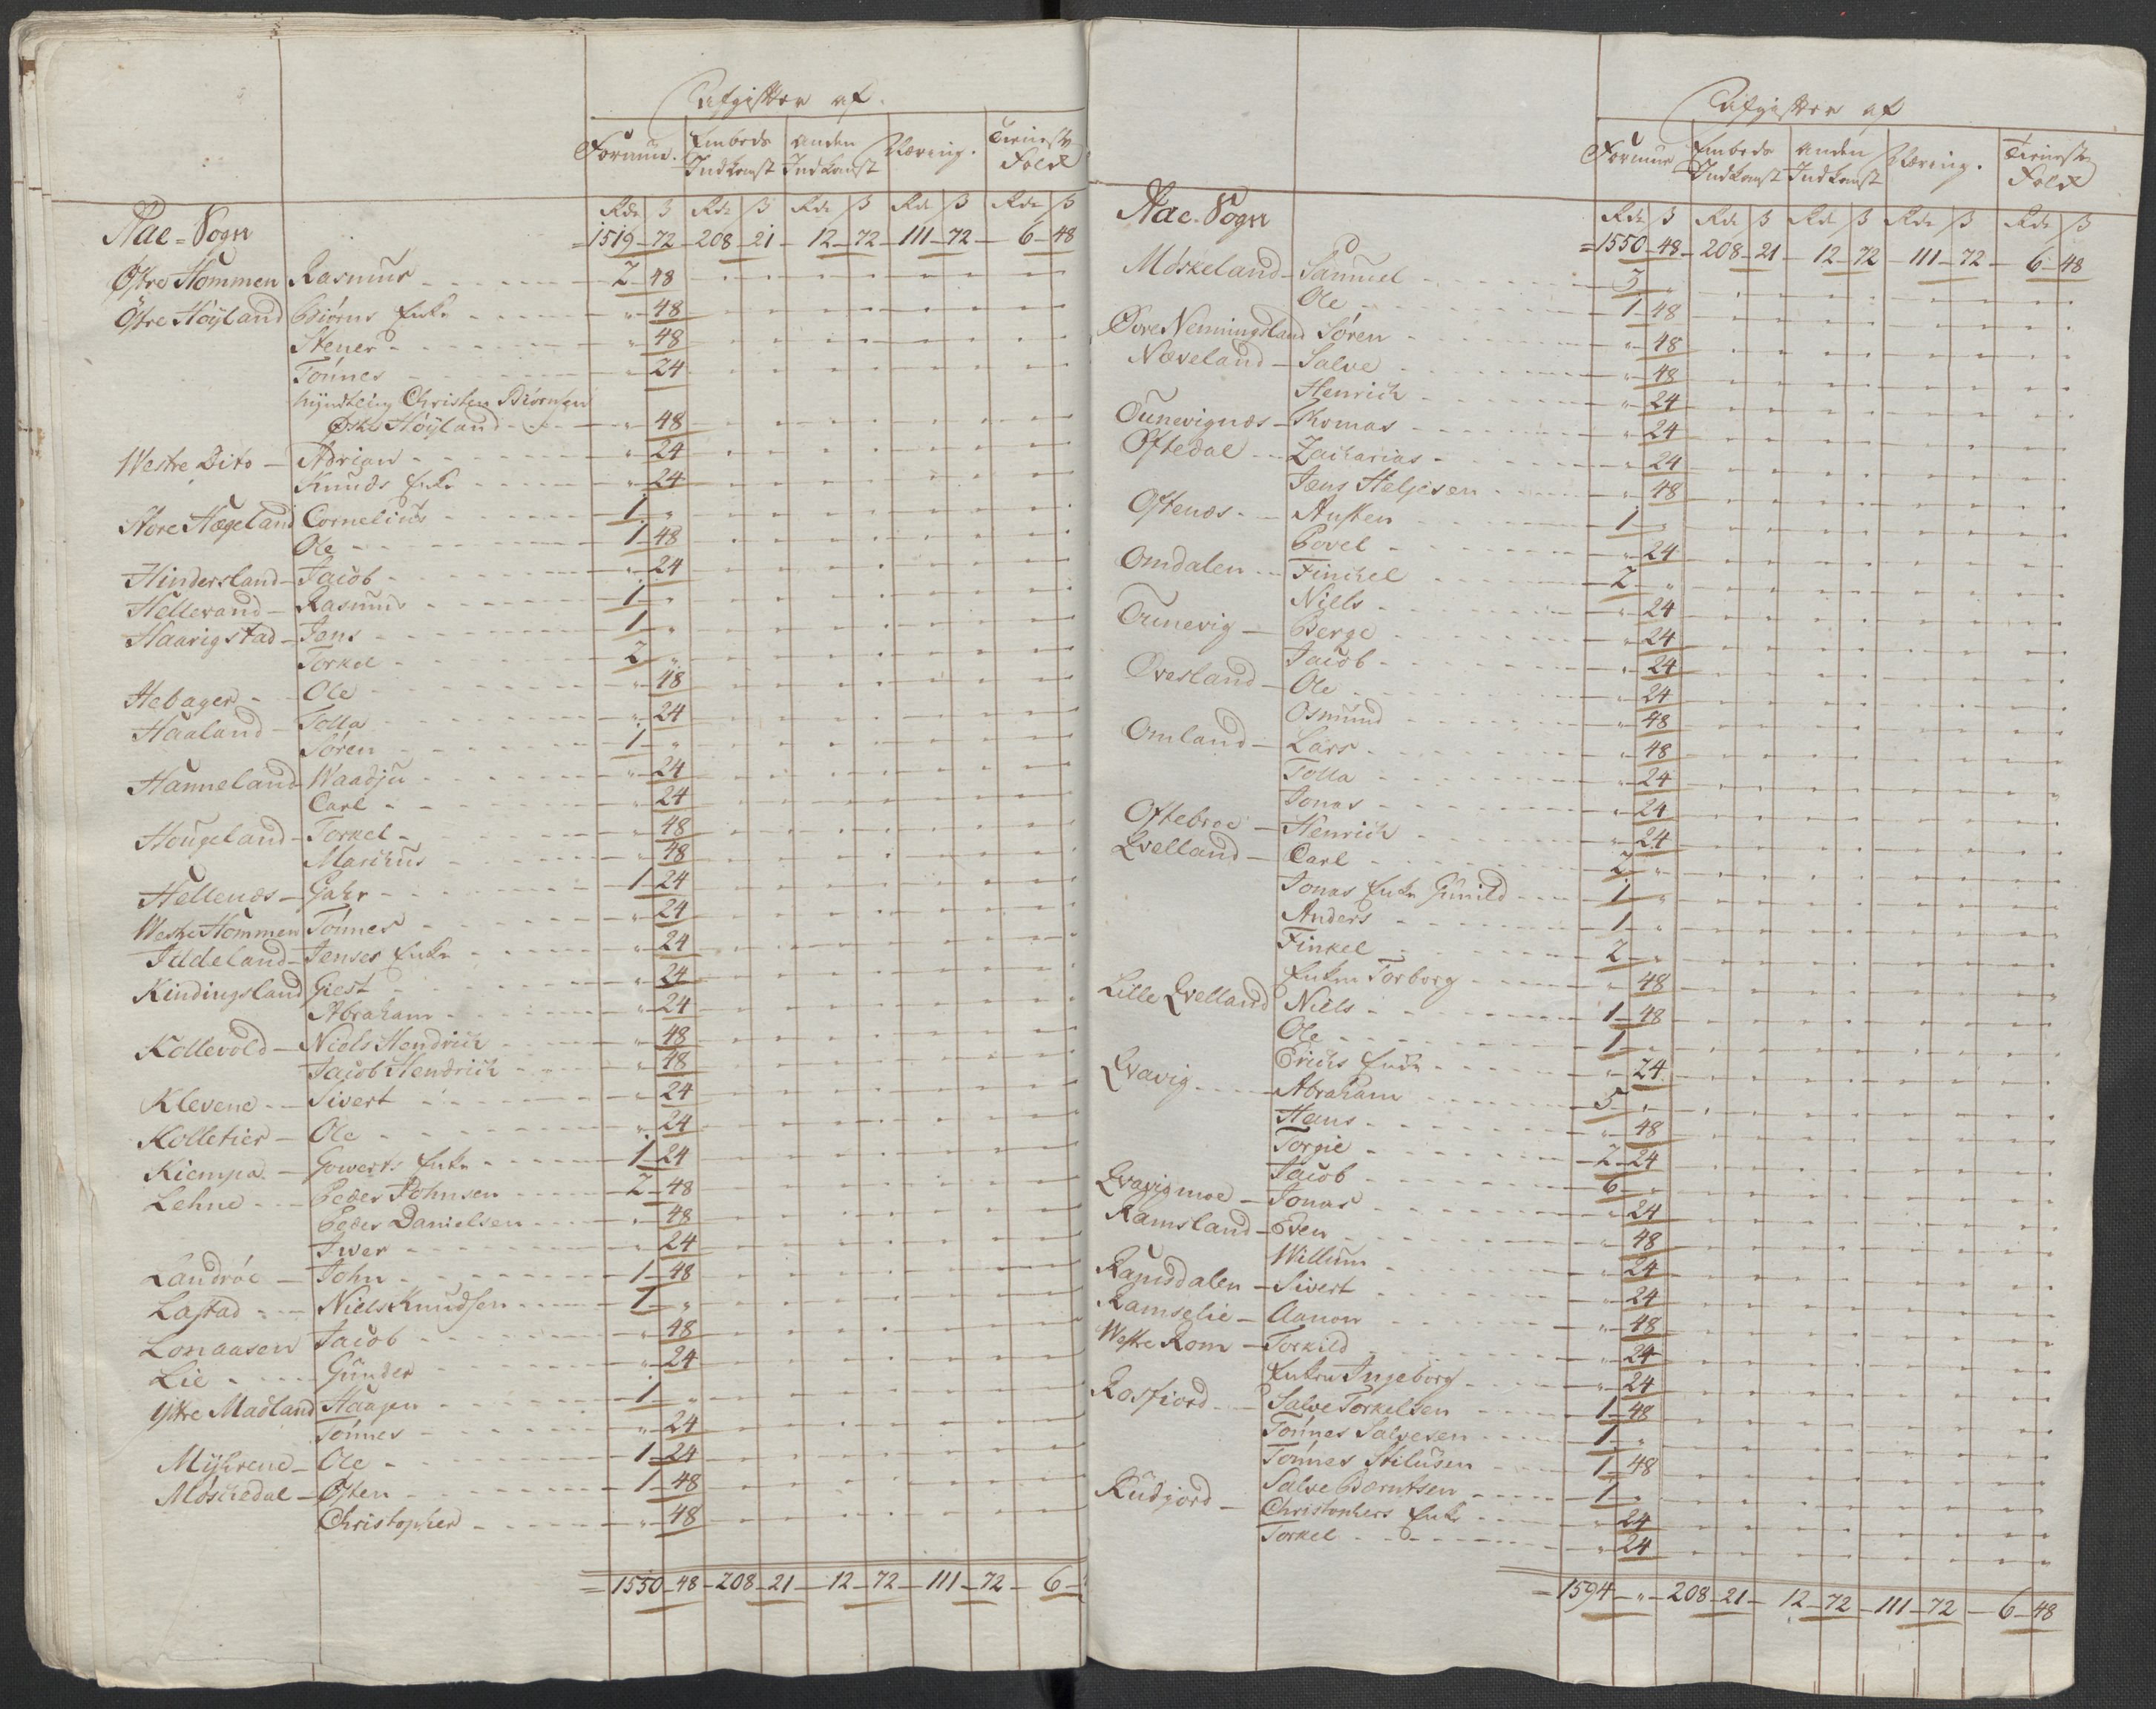 Afgifter af
Formue. Embeds Indkomst Anden Indkomst Næring. Tieniste Folk
Rdr ß Rdr ß Rdr ß Rdr ß Rdr ß
Aae=Sogn = 1519 - 72 - 208 - 21 - 12 - 72 - 111 - 72 - 6 - 48
Østre Hommen Rasmus - 2 - 48
Østre Höyland Biörns Enke - " - 48
Stener - " - 48
Tönnes - " - 24
Myndtling Christen Biörnsen
Østre Höyland - " - 48
Westre Dito - Adrian - " - 24
Knuds Enke - " - 24
Nore Hægeland Cornelius - 1 - "
Ole - 1 - 48
Hindersland - Jacob - " - 24
Hellevand - Rasmus - 1 - "
Haarigstad - Jens - 1 - "
Torkel - 2 - "
Hebager - Ole - " - 48
Haaland - Tolla - " - 24
Sören - 1 - "
Hanneland - Waadju - " - 24
Carl - " - 24
Hougeland - Torkel - " - 48
Marchus - " - 48
Hellenæs - Gahr - 1 - 24
Westre Hommen Tönnes - " - 24
Iddeland - Jenses Enke - " - 24
Kindingsland Giest - " - 24
Abraham - " - 24
Kollevold - Niels Hendrich - " - 48
Jacob Hendrich - " - 48
Klevene - Sivert - " - 24
Kolletier - Ole - " - 24
Kiempa - Gowerts Enke - 1 - 24
Lehne - Peder Johnsen - 2 - 48
Peder Danielsen - " - 48
Iwer - " - 24
Landröe - John - 1 - 48
Lastad - Niels Knudsen - 1 - "
Lonaasen Jacob - " - 48
Lie - Gunder - " - 24
Ystre Madland Haagen - 1 - "
Tönnes - " - 24
Myhrene - Ole - 1 - 24
Möschedal - Østen - 1 - 48
Christopher - " - 48
= 1550 - 48 - 208 - 21 - 12 - 72 - 111 - 72 - 6 -
Afgifter af
Formue Embeds Indkomst Anden Indkomst Næring. Tieniste Folk
Rdr ß Rdr ß Rdr ß Rdr ß Rdr ß
Aae=Sogn = 1550 - 48 - 208 - 21 - 12 - 72 - 111 - 72 - 6 - 48
Möskeland - Samuel - 3 - "
Ole - 1 - 48
Øvre Nenningsland Sören - " - 48
Næveland - Salve - " - 48
Henrich - " - 24
Ounevignæs - Thomas - " - 24
Oftedal - Zacharias - " - 24
Jens Helgesen - " - 48
Oftenæs - Austen - 1 - "
Povel - " - 24
Omdalen - Finckel - 2 - "
Niels - " - 24
Ounevig - Berge - " - 24
Jacob - " - 24
Øvesland - Ole - " - 24
Osmund - " - 48
Omland - Lars - " - 48
Tolla - " - 24
Jonas - " - 24
Oftebroe - Henrich - " - 24
Qvelland - Carl - 2 - "
Jonas Enke Gunild - 1 - "
Anders - 1 - "
Finkel - 2 - "
Enken Torborg - " - 48
Lille Qvelland Niels - 1 - 48
Ole - 1 - "
Erichs Enke - " - 24
Qvavig - Abraham - 5 - "
Hans - " - 48
Torgie - 2 - 24
Jacob - 6 - "
Qvavigmoe - Jonas - " - 24
Ramsland - Even - " - 48
Willum - " - 24
Ramsdalen - Sivert - " - 24
Ramselie - Aanon - " - 48
Westre Rom - Torkild - " - 24
Enken Ingeborg - " - 24
Rosfiord - Salve Torkelsen - 1 - 48
Tönnes Salvesen - 1 - "
Tönnes Stilusen - 1 - 48
Salve Berntsen - 1 - "
Rudjord - Christophers Enke - " - 24
Torkel - " - 24
= 1594 - " - 208 - 21 - 12 - 72 - 111 - 72 - 6 - 48